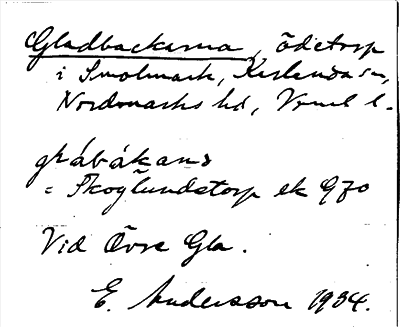 Gladbackarna, ödetorp
i Smolmark, Karlanda sn,
Nordmarks hd, Verml l.
glábákanɒ
= Skoglundstorp ek 970
Vid Övre Gla.
E. Andersson 1934.